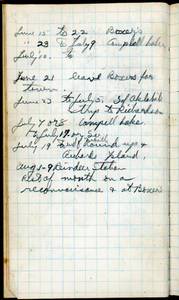 June 15 to 22 Boxer's
" 23 to July 9 Campbell Lake
July 10 to
June 21 leave Boxers for
town.
June 23 to July 5.
trip to Richardson
July 7 or 8 Campbell Lake
to July 19 or
July 19 to Round up &
Richards Island,
Aug 1-9 Reindeer Station
Rest of month on a
reconnaissance & at Boxers